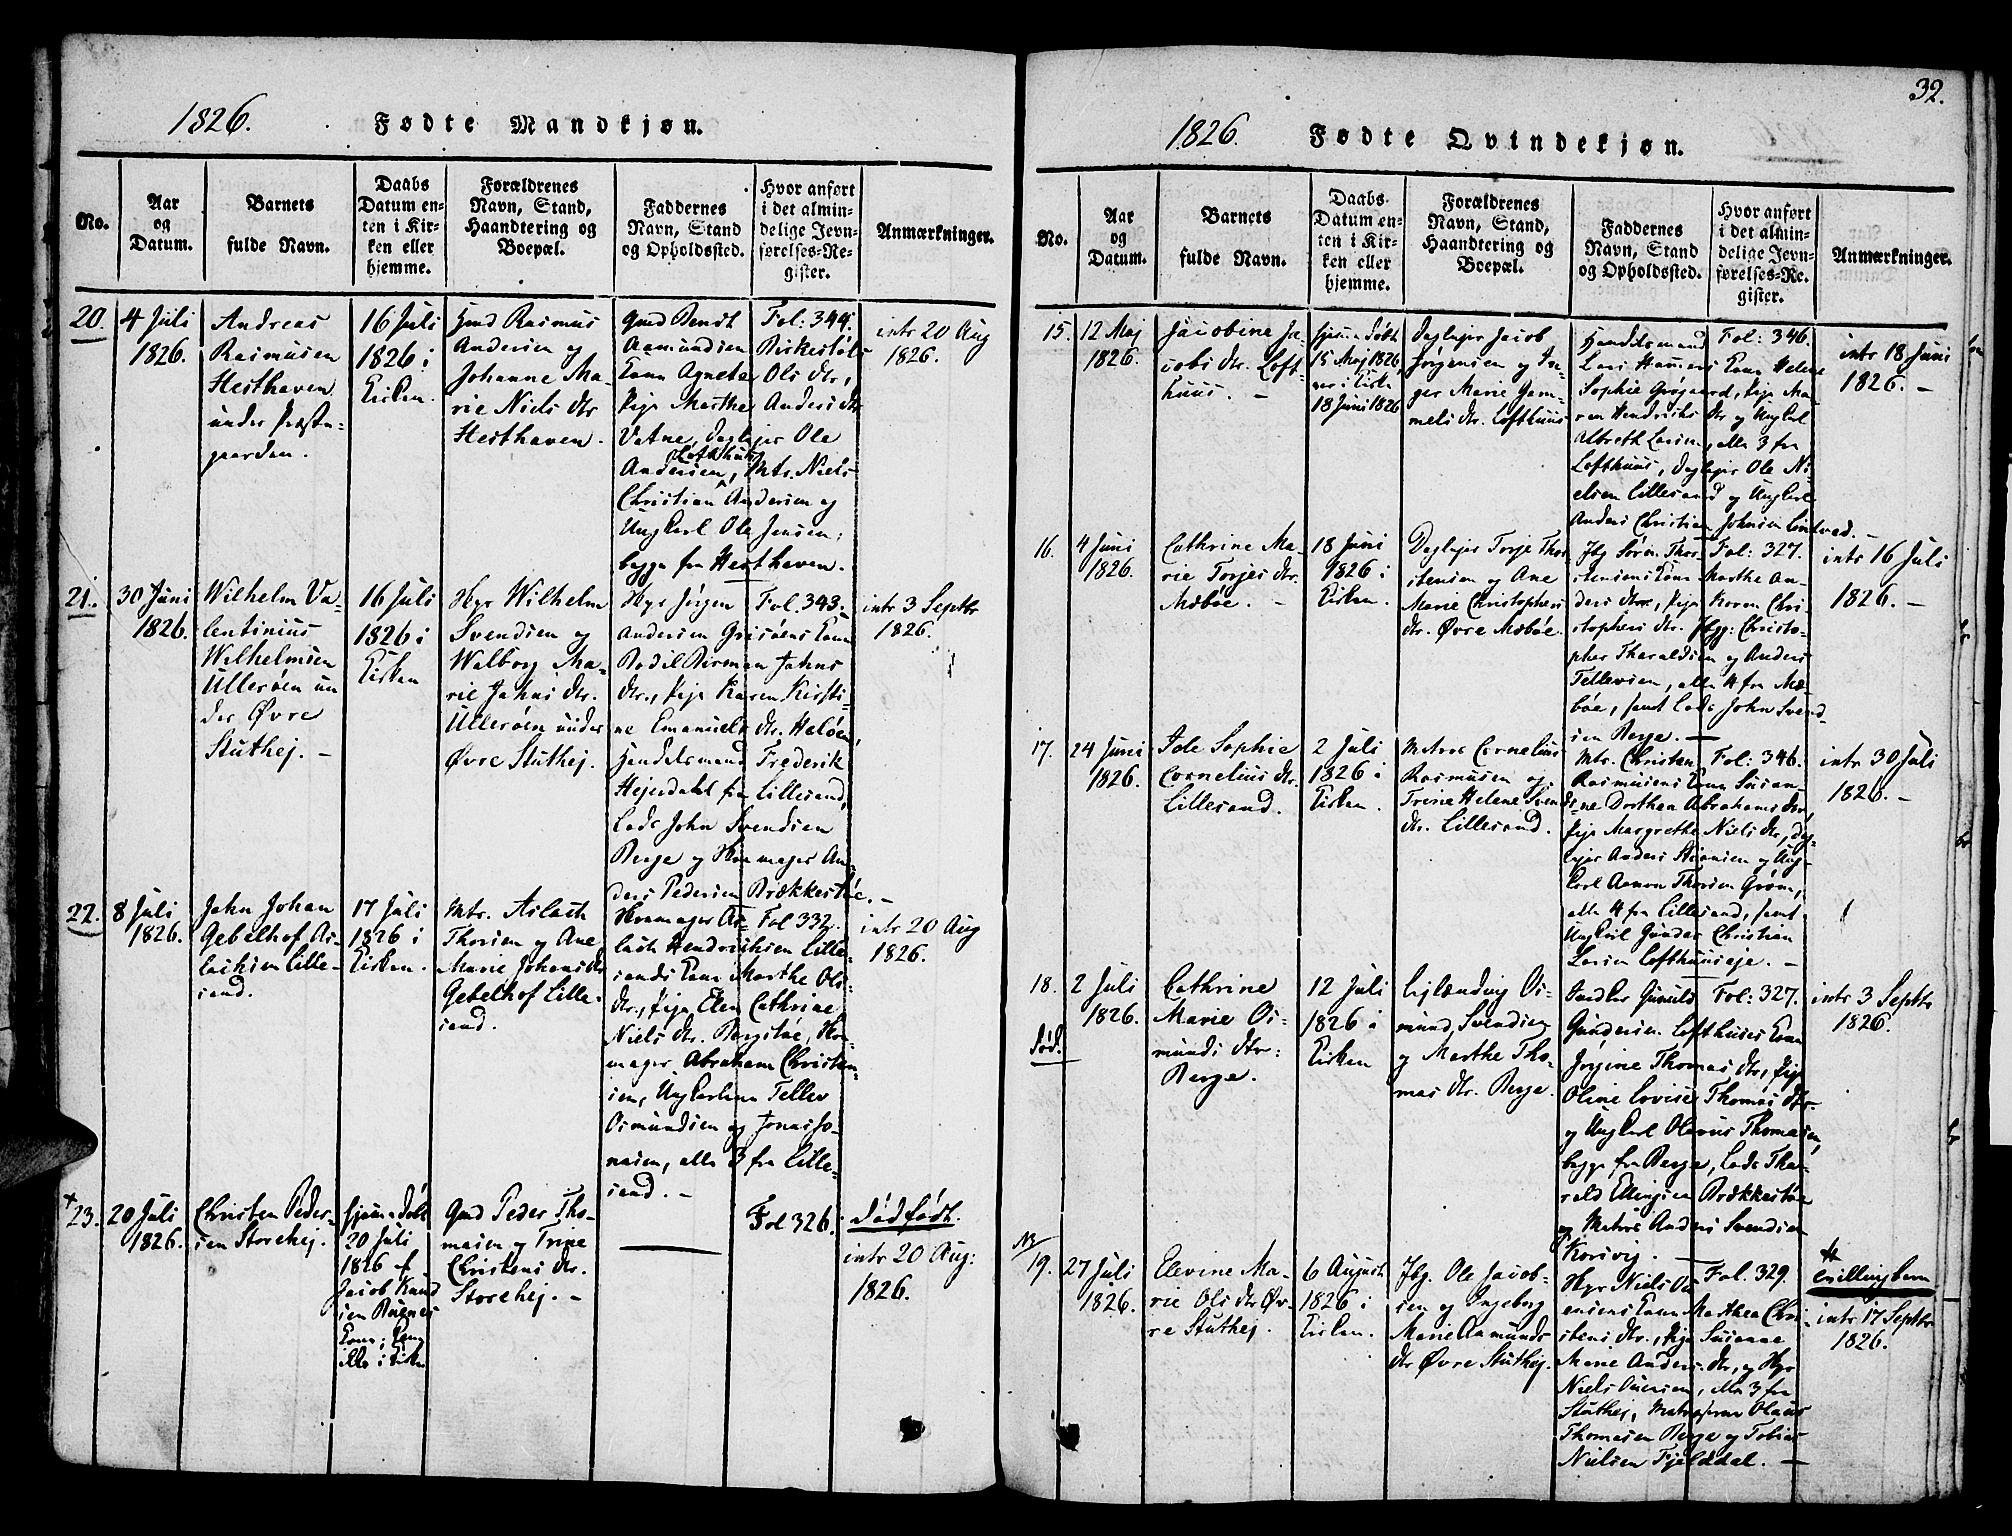 1826. Fødte Mandkjøn.
No.
Aar
og
Datum.
Barnets
fulde Navn.
Daabs
Datum en-
ten i Kir-
ken eller
hjemme.
Forældrenes
Navn, Stand,
Haandtering og
Boepæl.
Faddernes
Navn, Stand
og Opholdssted.
Hvor anført
i det almin-
delige Jevn-
førelses-Re-
gister.
Anmærkninger.
20.
4 Juli
1826.
Andreas
Rasmusen
Hesthaven
under Præste-
gaarden.
16 Juli
1826 i
Kirken.
Gmd Rasmus
Andersen og
Johanne Ma-
rie Niels dtr
Hesthaven.
Gmd Bendt
Aamundsen Birkestøls
Kone Agnete Ols dtr,
Pige Marthe Anders dtr
Vatne, Daglejer Ole
Andersen, Lofthuus, Mtr. Niels
Christian Andersen og
Ungkarl Ole Jensen,
begge fra Hesthaven.
Fol: 344.
intr 20 Aug
1826.
21.
30 Juni
1826.
Wilhelm Va-
lentinius
Wilhelmsen
Ulleröen un-
der Øvre
Stuthej. —
16 Juli
1826 i
Kirken
Hyr Wilhelm
Svendsen og
Walborg Ma-
rie Jahns dtr.
Ulleröen under
Øvre Stuthej.
Hyr Jörgen
Andersen Grisöens Kone
Bodil Birman Jahns
dtr., Pige Karen Kirsti-
ne Emanuels dtr. Helöen,
Handelsmand Frederik
Hejerdahl fra Lillesand,
Lods John Svendsen
Berge og Skomager An-
ders Pedersen Brækkestöe. —
Fol. 343.
intr 3 Septbr
1826.
22.
8 Juli
1826.
John Johan
Gebelhof As-
lachsen Lille-
sand.
17 Juli
1826 i
Kirken.
Mtr. Aslach
Thorsen og Ane
Marie Johans dtr
Gebelhof Lille-
sand.
Skomager As-
lach Hendrichsen Lille-
sands Kone Marthe Ols
dtr., Pige Elen Cathrine
Niels dtr. Bergstöe, Sko-
mager Abraham Christen-
sen, Ungkarlene Tellev
Osmundsen og Jonas Jo-
nasen, alle 3 fra Lille-
sand. —
Fol 332.
intr 20 Aug
1826.
+
23.
20 Juli
1826.
Christen Peder-
sen Storehej.
hjemme döbt
20 Juli
1826 af
Jacob Knud
sen
Kone;
Gmd Peder Tho-
masen og Trine
Christens dtr.
Storehej. —
Fol 326.
dødfødt.
intr 20 Aug:
1826.
32.
1826. Fødte Qvindekjøn.
No.
Aar
og
Datum.
Barnets
fulde Navn.
Daabs
Datum en-
ten i Kir-
ken eller
hjemme.
Forældrenes
Navn, Stand,
Haandtering og
Boepæl.
Faddernes
Navn, Stand
og Opholdssted.
Hvor anført
i det almin-
delige Jevn-
førelses-Re-
gister.
Anmærkninger.
15.
12 Maj
1826.
Jacobine Ja-
cobs dtr. Loft-
huus. —
hjemme döbt
15 Maj 1826,
i Kirken
18 Juni 1826
Daglejer Jacob
Jørgensen og In-
ger Marie Gam-
mels dtr. Lofthuus
Handelsmand
Lars Hansens Kone Helene
Sophie Grögaard, Pige Ma-
ren Hendrichs dtr og Ungkarl
Albreth Larsen, alle 3 fra
Lofthuus, Daglejer Ole Ni-
elsen Lillesand og Ungkarl
Anders Christian Johnsen
Fol: 346.
intr 18 Juni
1826. —
16.
4 Juni
1826.
Cathrine Ma-
rie Torjes dtr.
Mæböe. —
18 Juni
1826 i
Kirken
Daglejer Torje Thor-
stensen og Ane
Marie Christophers
dtr. Øvre Mæböe.
Jbg Sören Thor-
stensens Kone Marthe An-
ders dtr., Pige Karen Chri-
stophers dtr. Jbgg: Christo-
pher Tharaldsen og Anders
Tellevsen, alle 4 fra Mæ-
böe, samt Lods John Svend-
sen Berge. —
Fol: 327.
intr 16 Juli
1826. —
17.
24 Juni
1826.
Ide Sophie
Cornelius dtr.
Lillesand.
2 Juli
1826 i
Kirken.
Matros Cornelius
Rasmusen og
Trine Helene Svends
dtr. Lillesand.
Mtr. Christen
Rasmusens Kone Susan-
ne Dorthea Abrahams dtr,
Pige Margrethe Niels dtr, Dag-
lejer Anders Stiansen og Ung-
karl Aanon Thorsen Gröm,
alle 4 fra Lillesand, samt
Ungkarl Gunder Christian
Larsen Lofthuuseje. —
Fol: 346.
intr 30 Juli
1826. —
18.
död.
2 Juli
1826.
Cathrine
Marie Os-
munds dtr:
Berge.
12 Juli
1826 i
Kirken
Lejlænding Os-
mund Svendsen
og Marthe Tho-
mas dtr. Berge.
Gunuld
Gundersen Lofthuses Kone
Jørgine Thomas dtr, Pige
Oline Lovise Thomas dtr.
og Ungkarl Olavus Thomasen,
begge fra Berge, Lods Tha-
rald Ellingsen Brækkestöe
og Matros Anders Svendsen
Korsvig. —
Fol: 327.
intr 3 Septbr
1826.
NB
19.
27 Juli
1826.
Elevine Ma-
rie Ols dtr Øv-
re Stuthej.
6 August
1826 i
Kirken.
Jbg. Ole Jacob-
sen og Ingeborg
Marie Aamunds
dtr Øvre Stuthej.
Hyr Niels Ou-
ensens Kone Marthea Chri-
stens dtr., Pige Susanne
Marie Anders dtr, og Hyr
Niels Ouensen, alle 3 fra
Stuthej, Matroserne Olaus
Thomesen Berge og Tobias
Nielsen Fjelddal. —
Fol. 329.
tvillingbarn
intr 17 Septbr
1826.